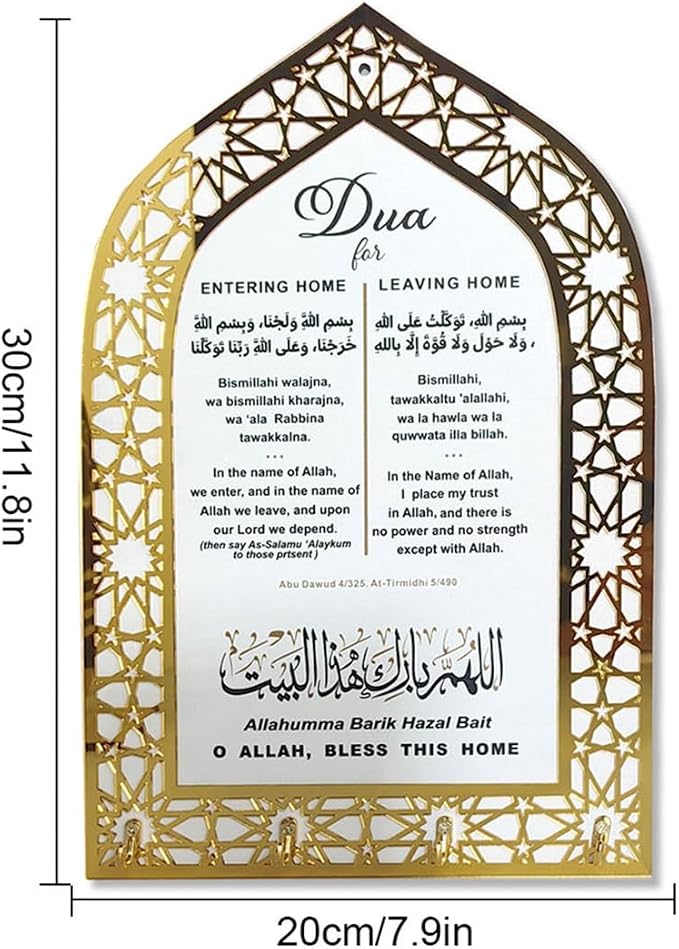 Dua
for
ENTERING HOME
بِسْمِ اللَّهِ وَلَجْنَا، وَبِسْمِ اللَّهِ
خَرَجْنَا، وَعَلَى اللَّهِ رَبِّنَا تَوَكَّلْنَا
Bismillahi walajna,
wa bismillahi kharajna,
wa ‘ala Rabbina
tawakkalna.
...
In the name of Allah,
we enter, and in the name of
Allah we leave, and upon
our Lord we depend.
(then say As-Salamu ‘Alaykum
to those prtsent )
LEAVING HOME
بِسْمِ اللهِ، تَوَكَّلْتُ عَلَى اللهِ
، وَلَا حَوْلَ وَلَا قُوَّةَ إِلَّا بِاللهِ
Bismillahi,
tawakkaltu 'alallahi,
wa la hawla wa la
quwwata illa billah.
...
In the Name of Allah,
I place my trust
in Allah, and there is
no power and no strength
except with Allah.
Abu Dawud 4/325. At-Tirmidhi 5/490
اللهُمَّ بَارِكْ هٰذَا الْبَيْتَ
Allahumma Barik Hazal Bait
O ALLAH, BLESS THIS HOME
30cm/11.8in
20cm/7.9in